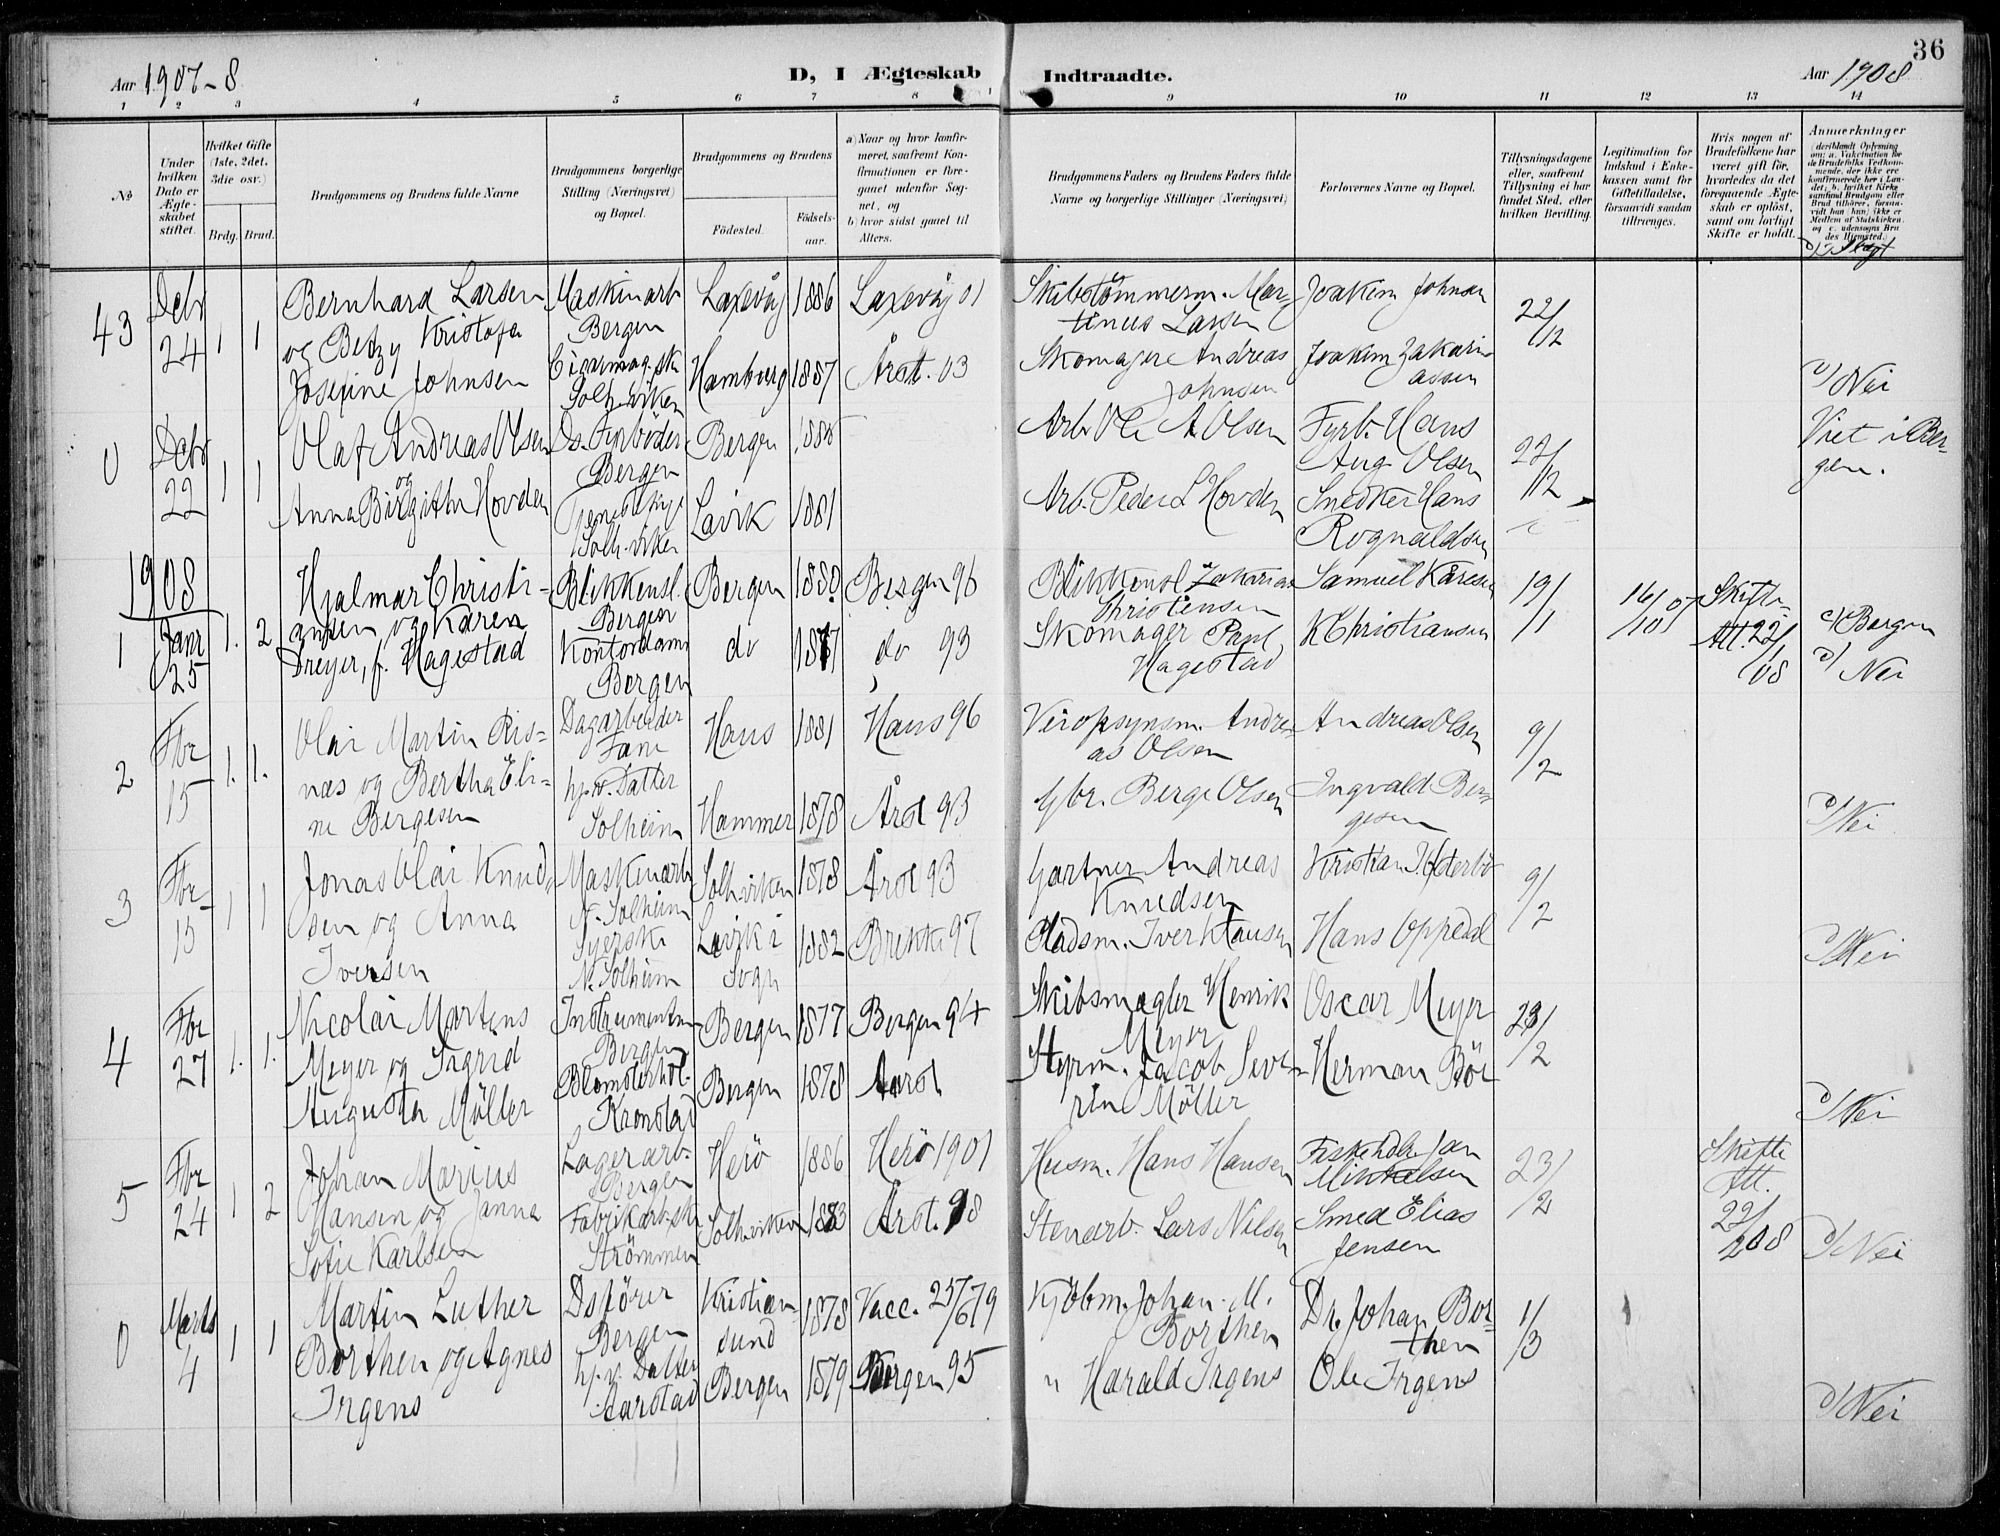 36
Aar 1907-8
D, I Ægteskab
Indtraadte.
Aar 1908
1 2 3 4 5 6 7 8 9 10 11 12 13 14
No
Under hvilken Dato er Ægteskabet stiftet.
Hvilket Gifte (1ste, 2det, 3die osv.)
Brdg. Brud.
Brudgommens og Brudens fulde Navne
Brudgommens borgerlige Stilling (Næringsvei) og Bopæl.
Brudgommens og Brudens
Fødested. Fødsels-aar.
a) Naar og hvor konfirmeret, saafremt Konfirmationen er foregaaet udenfor Sognet, og
b) hvor sidst gaaet til Alters.
Brudgommens Faders og Brudens Faders fulde Navne og borgerlige Stillinger (Næringsvei)
Forlovernes Navne og Bopæl.
Tillysningsdagene eller, saafremt Tillysning ei har fundet Sted, efter hvilken Bevilling.
Legitimation for Indskud i Enkekassen samt for Giftetilladelse, forsaavidt saadan tiltrænges.
Hvis nogen af Brudefolkene har været gift før, hvorledes da det foregaaende Ægteskab er opløst, samt om lovligt Skifte er holdt.
Anmerkninger
(deriblandt Oplysning om: a. Vakcination for de Brudefolks Vedkommende, der ikke ere konfirmerede her i Landet; b. hvilket Kirkesamfund Brudgom eller Brud tilhører, forsaavidt han (hun) ikke er Medlem af Statskirken, og c. udensogns Brudes Hjemsted.)
43 Decbr 24 1 1
Bernhard Larsen
og Betzy Kristofa
Josefine Johnsen
Maskinarb
Bergen
Cigarmag.ske
Solh.viken
Laxevåg 1886 Laxevåg 01
Hamburg 1887 Årst. 03
Skibstömmerm. Mar-
tinus Larsen
Skomager Andreas
Johnsen
Joakim Johnsen
Joakim Zakari-
assen
22/12
d/ Nei
0 Decbr 22 1 1
Olaf Andreas Olsen
og
Anna Birgithe Hovden
Ds. Fyrböder
Bergen
Solh.viken
Bergen 1885
Lavik 1881
Arb. Ole A Olsen
Arb. Peder L Hovden
Fyrb. Hans
Aug. Olsen
Snedker Hans
Rognaldsen
22/12
Viet i Ber-
gen.
1908
1 Janr 25 1. 2
Hjalmar Christi-
ansen og Karen
Dreyer, f. Hagestad
Blikkensl.
Bergen
Kontordame
Bergen
Bergen 1880 Bergen 96
do 1871 do 93
Blikkensl Zakarias
Christensen
Skomager Paul
Hagestad
Samuel Kåresen
K Christiansen
19/1
16/10 07
Skifte-
Att. 22/1 08
c/ Bergen
d/ Nei
2 Fbr 15 1. 1.
Olai Martin Ris-
næs og Bertha Eli-
ne Bergesen
Dagarbeider
Fane
hj.v. Datter
Solheim
Haus 1881 Haus 96
Hammer 1878 Årst 93
Veiopsynsm. Andre-
as Olsen
Gbr. Berge Olsen
Andreas Olsen
Ingvald Ber-
gesen
9/2
d/ Nei
3 Fbr 15 1 1
Jonas Olai Knud-
sen og Anna
Iversen
Maskinarb
N. Solheim
Syerske
N. Solheim
Solh.viken 1878 Årst 93
Lavik i
Sogn 1882 Brekke 97
Gartner Andreas
Knudsen
Pladsm. Iver Hansen
Kristian Osterbö
Hans Oppedal
9/2
d/ Nei
4 Fbr 27 1. 1.
Nicolai Martens
Meyer og Ingrid
Augusta Möller
Instrumentm
Bergen
Blomsterhdl.
Kronstad
Bergen 1877 Bergen 94
Bergen 1878 Aarst
Skibsmægler Henrik
Meyer
Styrm. Jacob Seve-
rin Möller
Oscar Meyer
Herman Böe
23/2
d/ Nei
5 Fbr 24 1 2
Johan Marius
Hansen og Janna
Sofie Karlsen
Lagerarb.
Bergen
Fabrikarb.ske
Strömmen
Herö 1886 Herö 1901
Solh.viken 1883 Årst. 98
Husm. Hans Hansen
Stenarb. Lars Nilsen
Fiskehdlr Jan
Mikkelsen
Smed Elias
Jensen
23/2
Skifte
Att.
22/2 08
d/ Nei
0 Marts 4 1 1
Martin Luther
Borthen og Agnes
Irgens
Dsförer
Bergen
hj.v. Datter
Aarstad
Kristian-
sund 1878 Vacc. 25/6 79
Bergen 1879 Bergen 95
Kjöbm. Johan M.
Borthen
" Harald Irgens
Dr. Johan Bor-
then
Ole Irgens
1/3
d/ Nei